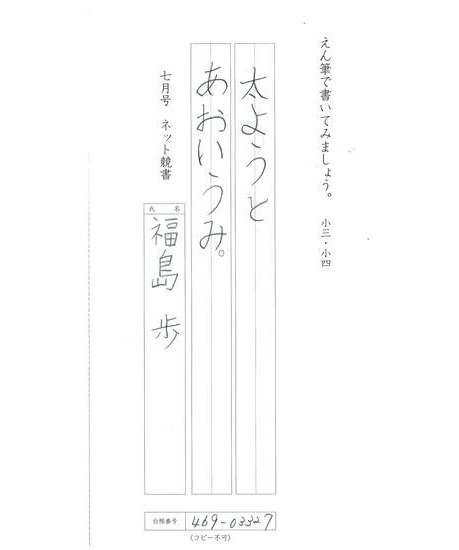 えん筆で書いてみましょう。 小三・小四
太ようと
あおいうみ。
七月号 ネット競書
氏名
福島 歩
台帳番号 469-03327
(コピー不可)